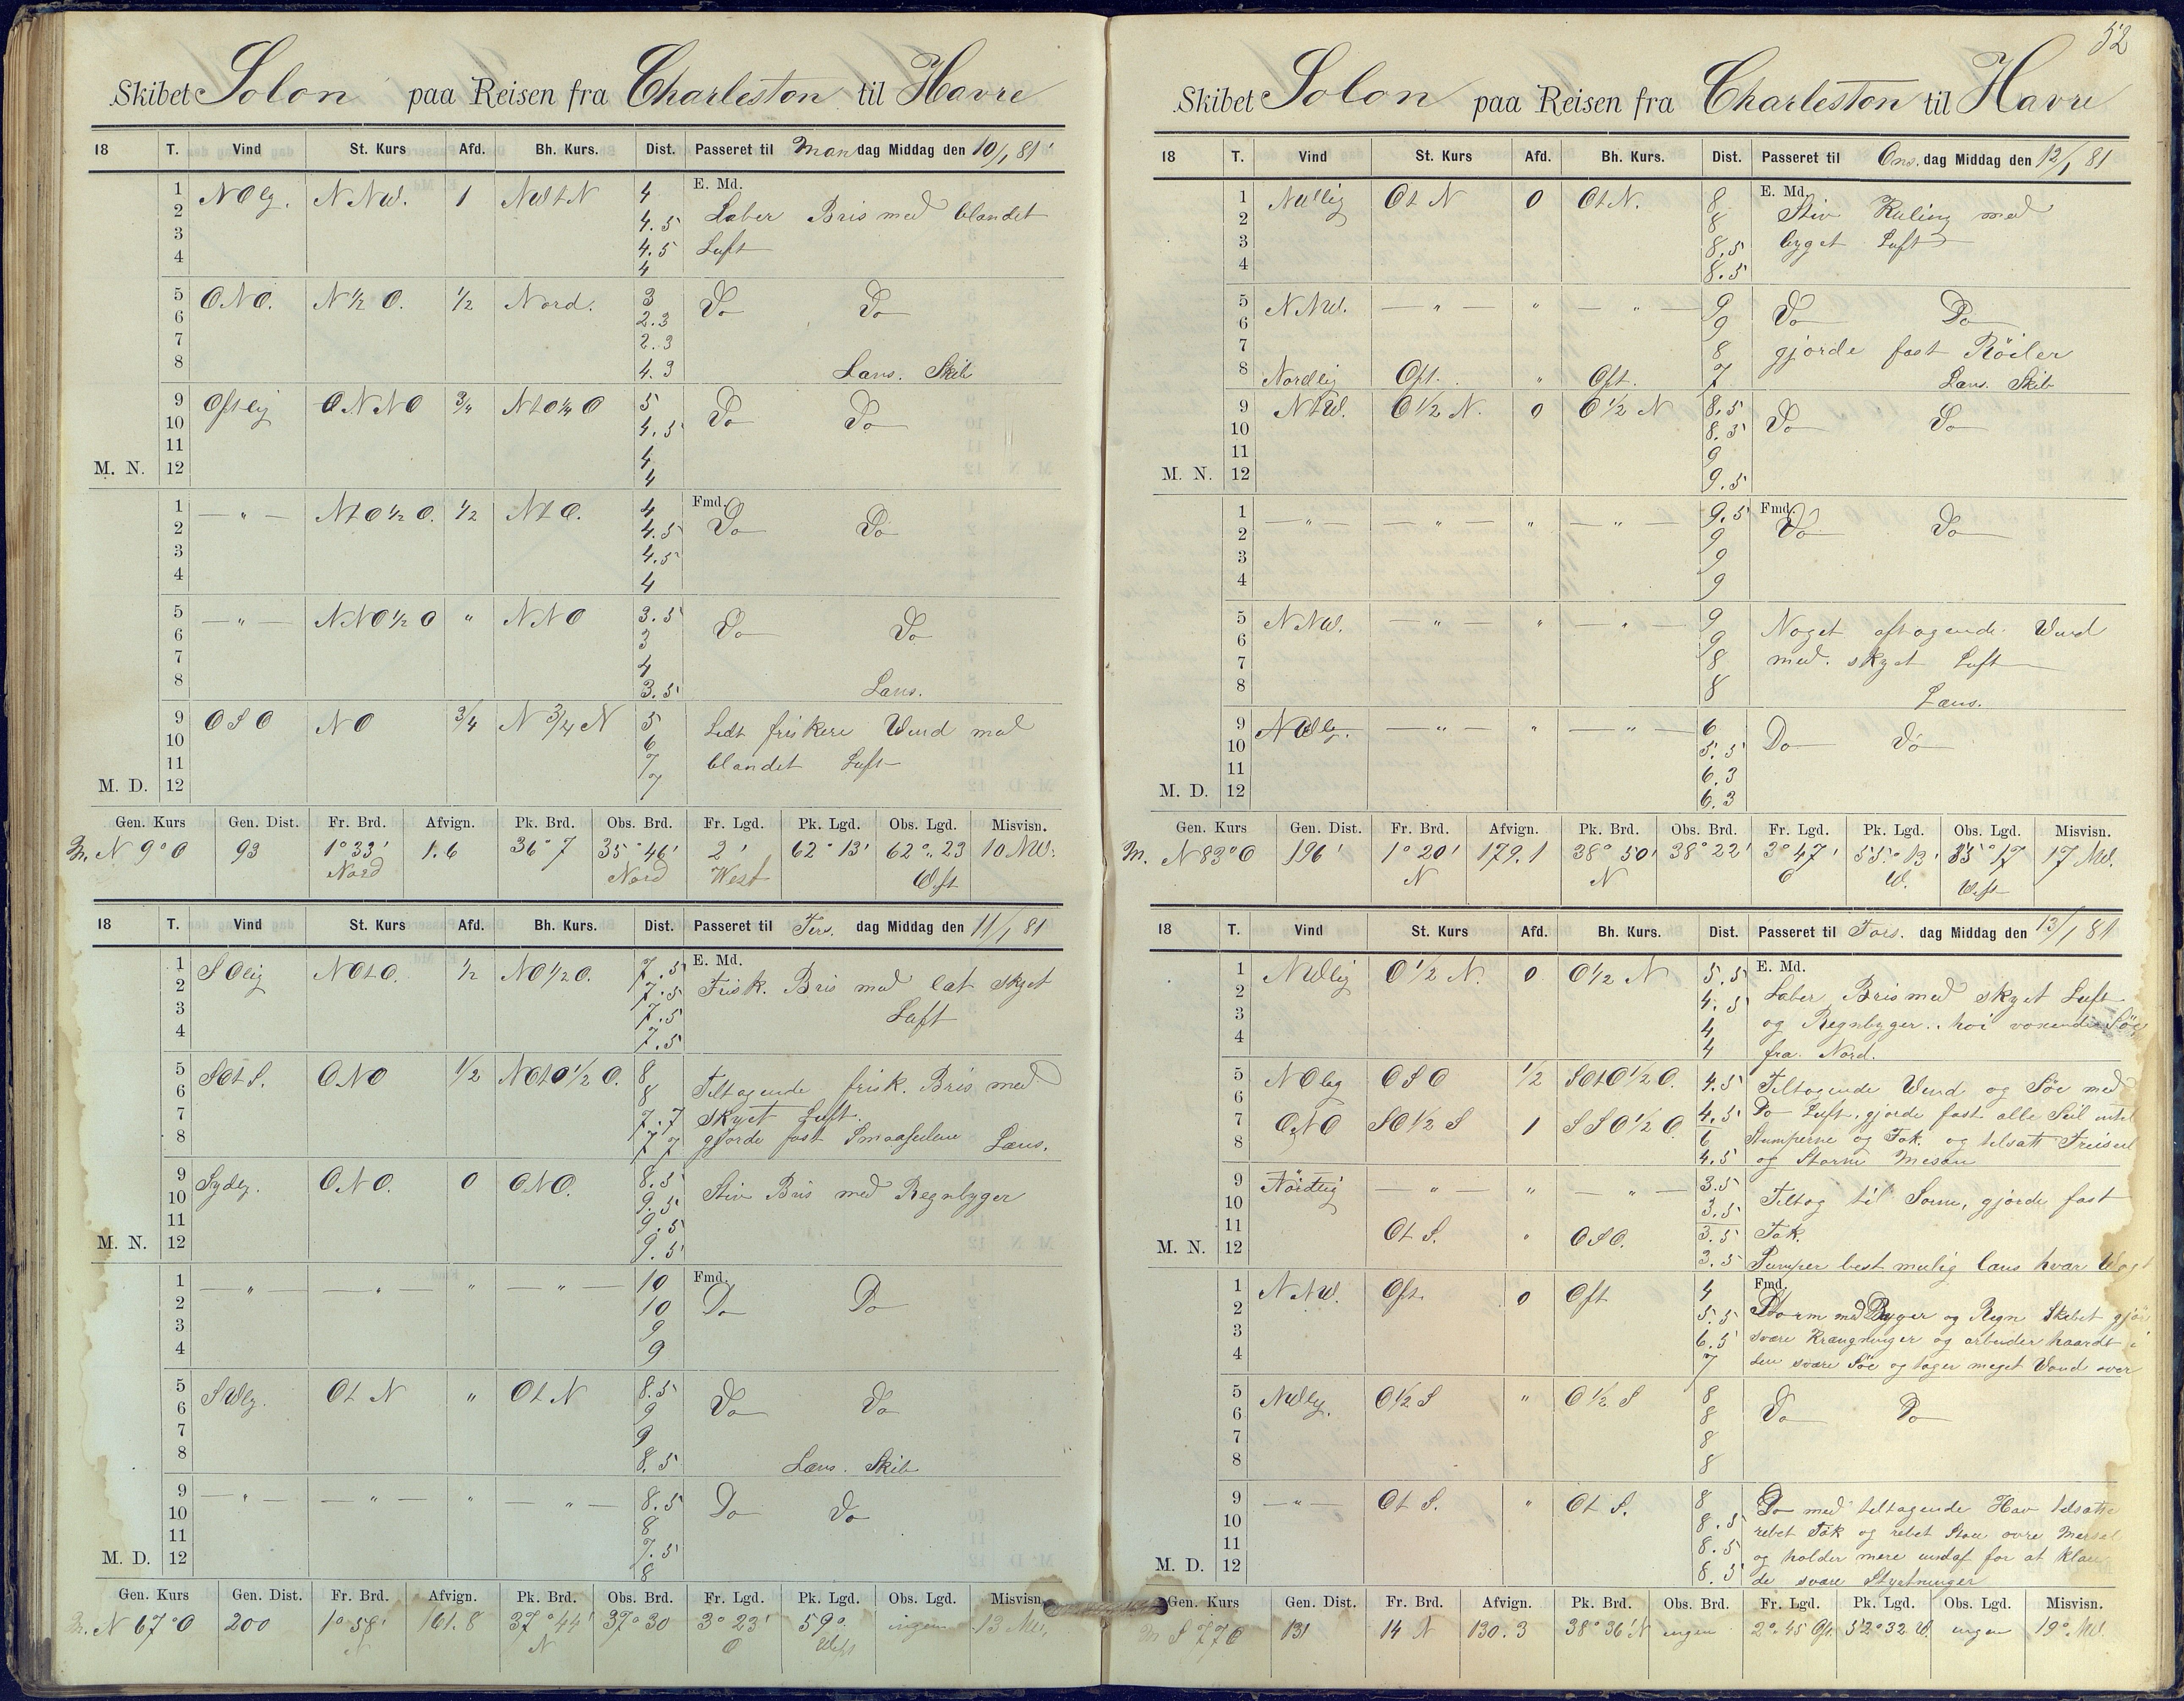 Skibet Solon paa Reisen fra Charleston til Havre
18 T. Vind St. Kurs Afd. Bh. Kurs. Dist. Passeret til Mandag Middag den 10/1 81
1 NOlg. NNW. 1 NWtN 4 E. Md.
2 4.5 Laber Bris med blandet
3 4.5 Luft
4 4
5 ONO. N½O. ½ Nord. 3 Do Do
6 2.3
7 2.3
8 4.3 Læns. Skib
9 Ostlig ONNO ¾ NtO¼O 5 Do Do
10 4.5
11 4
M. N. 12 4
1 — " — NtO½O. ½ NtO. 4 Fmd.
2 4.5 Do Do
3 4.5
4 4
5 — " — NNO½O " NNO 3.5 Do Do
6 3
7 4
8 3.5 Læns.
9 OSO NO ¾ N¾N 5 Lidt friskere Vind med
10 6 blandet Luft
11 7
M. D. 12 7
Gen. Kurs Gen. Dist. Fr. Brd. Afvign. Pk. Brd. Obs. Brd. Fr. Lgd. Pk. Lgd. Obs. Lgd. Misvisn.
m. N 9°O 93 1°33' 1.6 36°7 35°46' 2' 62°13' 62°23 10 NW.
Nord Nord West West
18 T. Vind St. Kurs Afd. Bh. Kurs. Dist. Passeret til Tirs. dag Middag den 11/1 81
1 SOlig NOtO. ½ NO½O. 7.5 E. Md.
2 7.5 Frisk. Bris med let skyet
3 7.5 Luft
4 7.5
5 SOtS. ONO ½ NOtO½O. 8 Tiltagende frisk. Bris med
6 8 skyet Luft.
7 7.7 gjorde fast Smaaseilene Læns.
8 7.7
9 Sydlg. ONO. 0 ONO. 8.5 Stiv Bris med Regnbyger
10 9.5
11 9.5
M. N. 12 9.5
1 — " — — " — " — " — 10 Fmd.
2 10 Do Do
3 9
4 9
5 SWlg. OtN " OtN 8.5 Do Do
6 9
7 9
8 8.5 Læns. Skib
9 — " — — " — " — " — 8.5 Do Do
10 8
11 7.5
M. D. 12 8
Gen. Kurs Gen. Dist. Fr. Brd. Afvign. Pk. Brd. Obs. Brd. Fr. Lgd. Pk. Lgd. Obs. Lgd. Misvisn.
m. N 67°O 200 1°58' 161.8 37°44' 37°30 3°23' 59° ingen 13 NW.
N N O West
52
Skibet Solon paa Reisen fra Charleston til Havre
18 T. Vind St. Kurs Afd. Bh. Kurs. Dist. Passeret til Ons. dag Middag den 12/1 81
1 NWlig OtN 0 OtN. 8 E. Md.
2 8 Stiv Kuling med
3 8.5 byget Luft
4 8.5
5 NNW. — " — " — " — 9 Do Do
6 9
7 8 gjorde fast Röiler
8 Nordlig Ost. " Ost. 7 Læns. Skib
9 NtW. O½N. 0 O½N 8.5 Do Do
10 8.5
11 9
M. N. 12 9.5
1 — " — — " — " — " — 9.5 Fmd.
2 9 Do Do
3 9
4 9
5 NNW. — " — " — " — 9 Noget aftagende Vind
6 9 med. skyet Luft
7 8
8 8 Læns.
9 NWlg. — " — " — " — 6 Do Do
10 5.5
11 6.3
M. D. 12 6.3
Gen. Kurs Gen. Dist. Fr. Brd. Afvign. Pk. Brd. Obs. Brd. Fr. Lgd. Pk. Lgd. Obs. Lgd. Misvisn.
m. N 83°O 196' 1°20' 179.1 38°50' 38°22' 3°47' 55°13' 55°17 17 NW.
N N O W. West
18 T. Vind St. Kurs Afd. Bh. Kurs. Dist. Passeret til Tors. dag Middag den 13/1 81
1 NWlig O½N. 0 O½N 5.5 E. Md.
2 4.5 Laber Bris med skyet Luft
3 4 og Regnbyger. hoi voxende Söe
4 4 fra. Nord.
5 NOleg OSO ½ SOtO½O. 4.5 Tiltagende Vind og Söe med
6 4.5 Do Luft, gjorde fast alle Seil intil
7 ONO SO½S 1 SSO½O. 6 Stumperne og Fok. og tilsatt Freiseil
8 4.5 og Storm Mesan
9 Nordlig — " — " — " — 3.5 Tiltog til Storm, gjorde fast
10 3.5
11 OtS. " OSO. 3.5 Fok.
M. N. 12 3.5 Pumper best mulig læns hvær Vagt
1 NNW. Ost. 0 Ost 4 Fmd.
2 5.5 Storm med Byger og Regn Skibet gjör
3 6.5 svære Krængninger og arbeider haardt i
4 7 den svære Söe og tager meget Vand over
5 NWlg. O½S " O½S 8 Do Do
6 8
7 8
8 8
9 — " — OtS. " OtS. 8 Do med tiltagende Hav tilsatte
10 8.5 rebet Fok og rebet Store övre Mersel
11 8.5 og holder mere undaf for at klare
M. D. 12 8.5 de svære Styrtninger
Gen. Kurs Gen. Dist. Fr. Brd. Afvign. Pk. Brd. Obs. Brd. Fr. Lgd. Pk. Lgd. Obs. Lgd. Misvisn.
m S 77 O 131 14 N 130.3 38°36'N ingen 2°45 Ost. 52°32 W. ingen 19° NW.